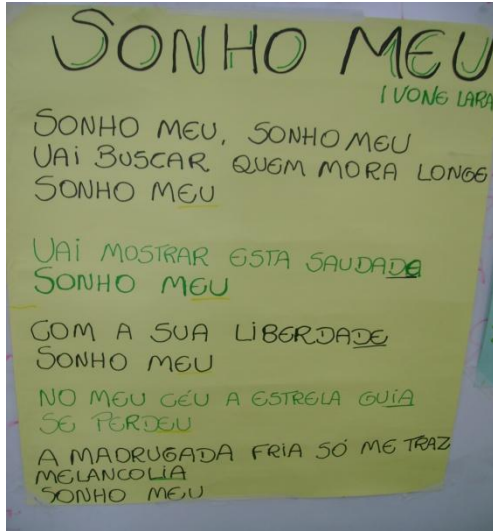 SONHO MEU
IVONE LARA
SONHO MEU, SONHO MEU
VAI BUSCAR QUEM MORA LONGE
SONHO MEU
VAI MOSTRAR ESTA SAUDADE
SONHO MEU
COM A SUA LIBERDADE
SONHO MEU
NO MEU CÉU A ESTRELA GUIA
SE PERDEU
A MADRUGADA FRIA SÓ ME TRAZ
MELANCOLIA
SONHO MEU